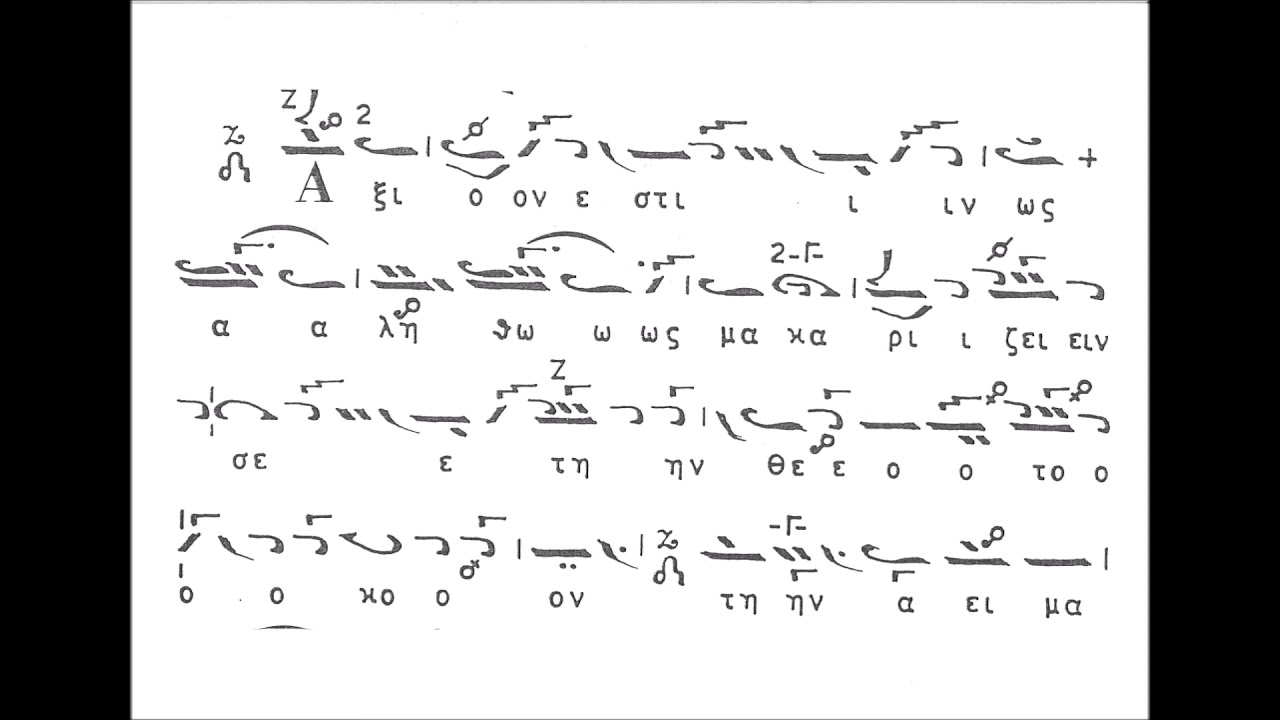 Α ξι ο ον ε στι ι ιν ως
α α λη θω ω ως μα κα ρι ι ζει ειν
σε ε τη ην θε ε ο ο το ο
ο ο κο ο ον τη ην α ει μα